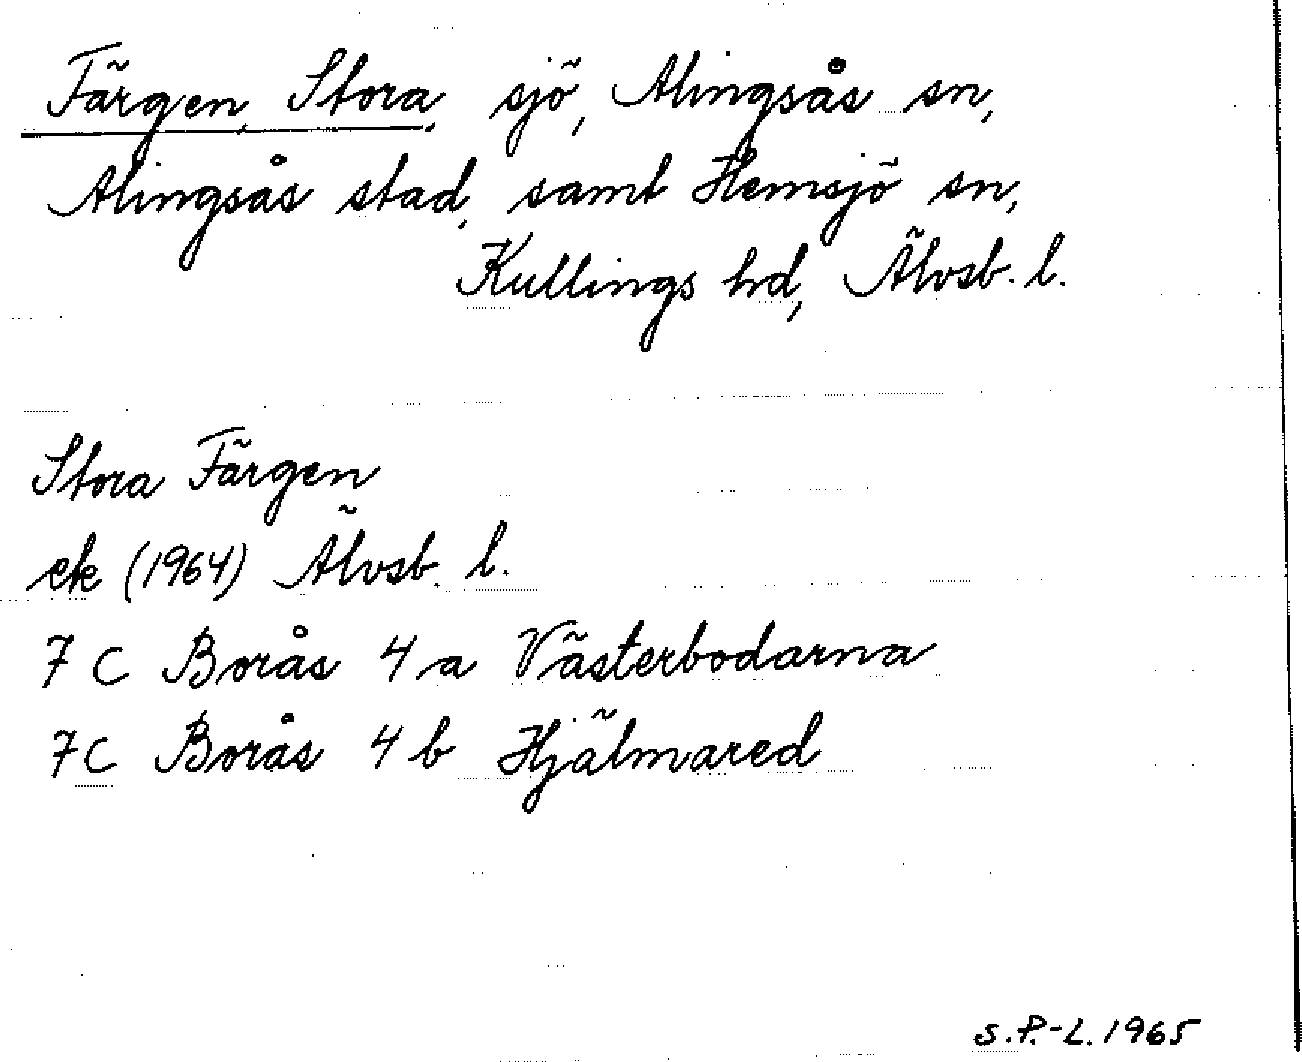 Färgen, Stora, sjö, Alingsås sn,
Alingsås stad, samt Hemsjö sn,
Kullings hd, Älvsb. l.
Stora Färgen
ek (1964) Älvsb. l.
7 C Borås 4 a Västerbodarna
7 C Borås 4 b Hjälmared
S.P.-L. 1965